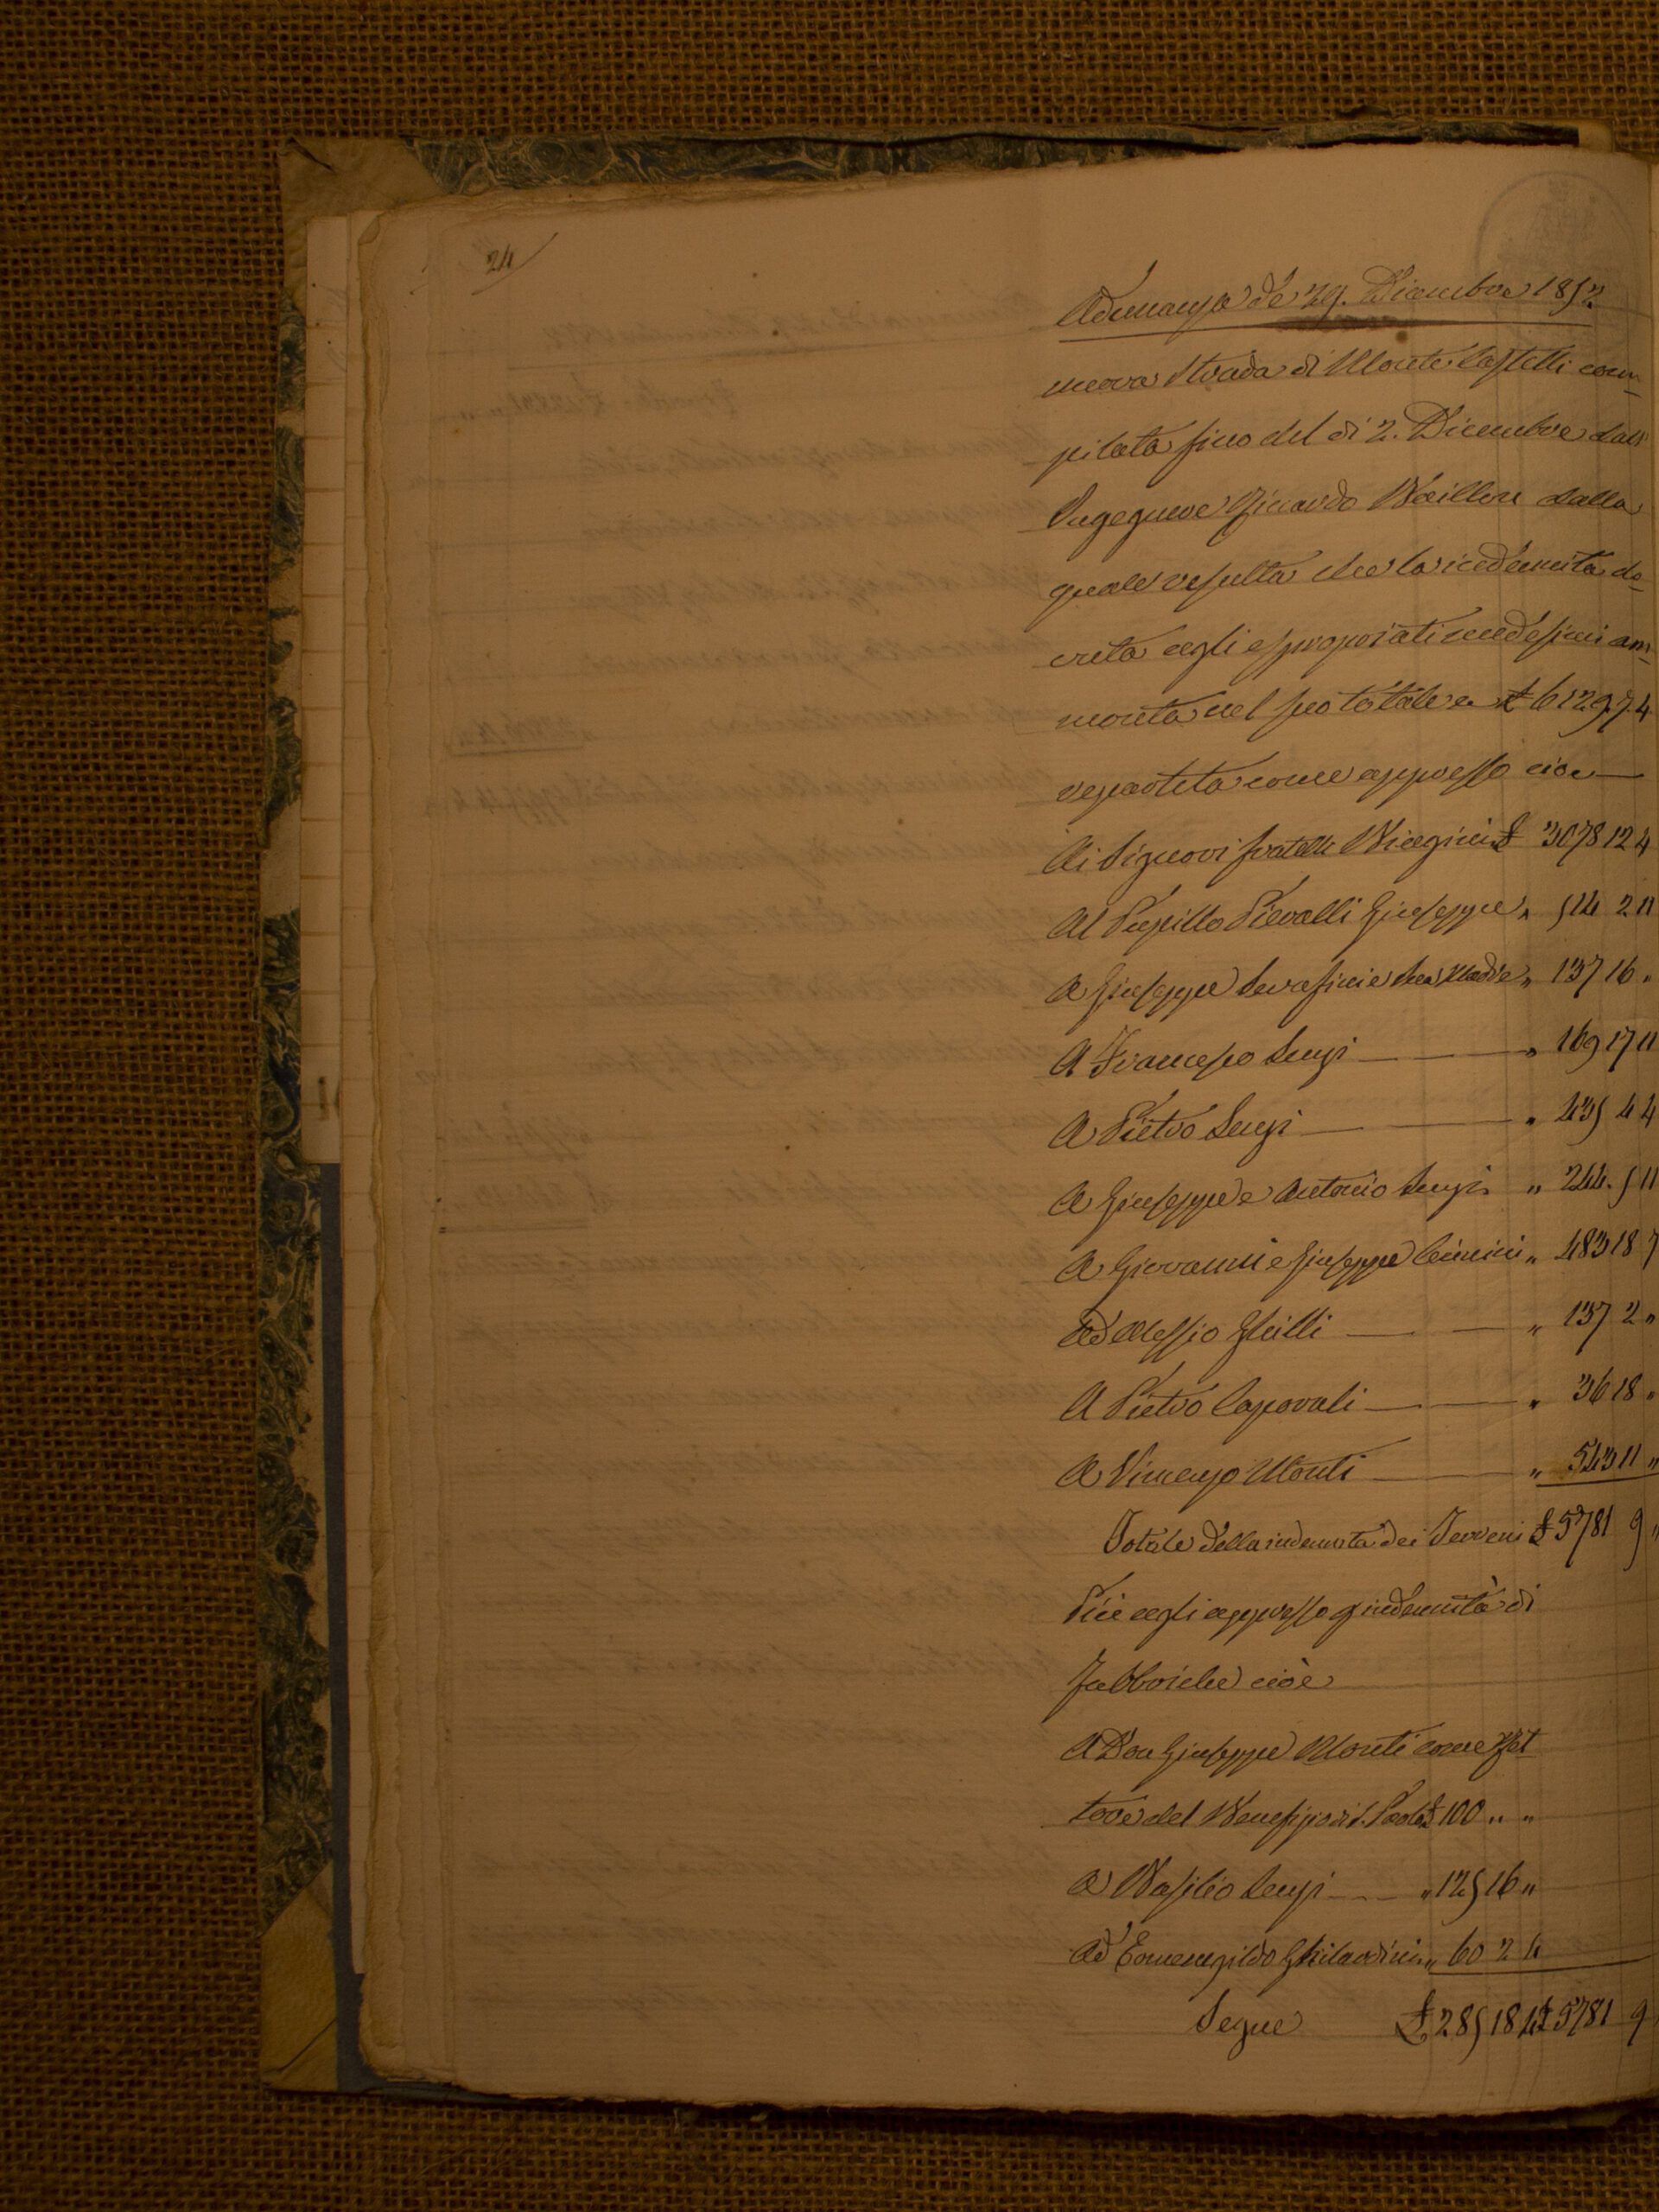 24
Adunanza de 29. Dicembre 1852
nuova Strada di Monte Castelli com-
pilata fino del di 2. Dicembre dall'
Ingegnere Riccardo Waillen dalla
quale resulta che la indennità do-
vuta agli espropriati medesimi am-
monta nel suo totale a £ 6129.7.4
repartita come appresso cioe
Ai Signori fratelli Biagini £ 3078 12 4
Al Pupillo Pieralli Giuseppe " 514 2 11
A Giuseppe Serafini e sua Madre " 137 16 "
A Francesco Lenzi " 169 17 11
A Pietro Lenzi " 435 4 4
A Giuseppe e Antonio Lenzi " 244. 5 11
A Giovanni e Giuseppe Cimini " 483 18 7
Ad Alessio Ghilli " 137 2 "
A Pietro Caporali " 36 18 "
A Vincenzo Monti " 543 11 "
Totale della indennità dei Terreni £ 5781 9 "
Piu agli appresso p indennità di
Fabbriche cioè
A Don Giuseppe Monti come Ret
tore del Benefizio di S. Paolo £ 100 " "
A Basilio Lenzi " 125 16 "
Ad Ermenegildo Ghilardini " 60 2 4
Segue £ 285 18 4 £ 5781 9